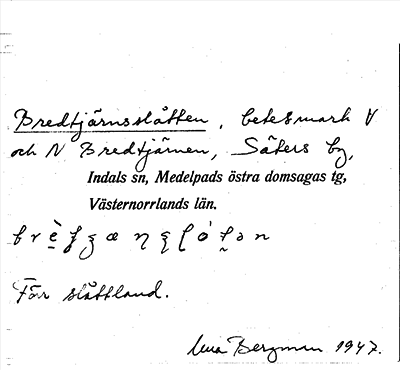 Bredtjärnsslåtten, betesmark V
och N Bredtjärnen, Säters by,
Indals sn, Medelpads östra domsagas tg,
Västernorrlands län.
Förr slåttland.
Bergman 1947.